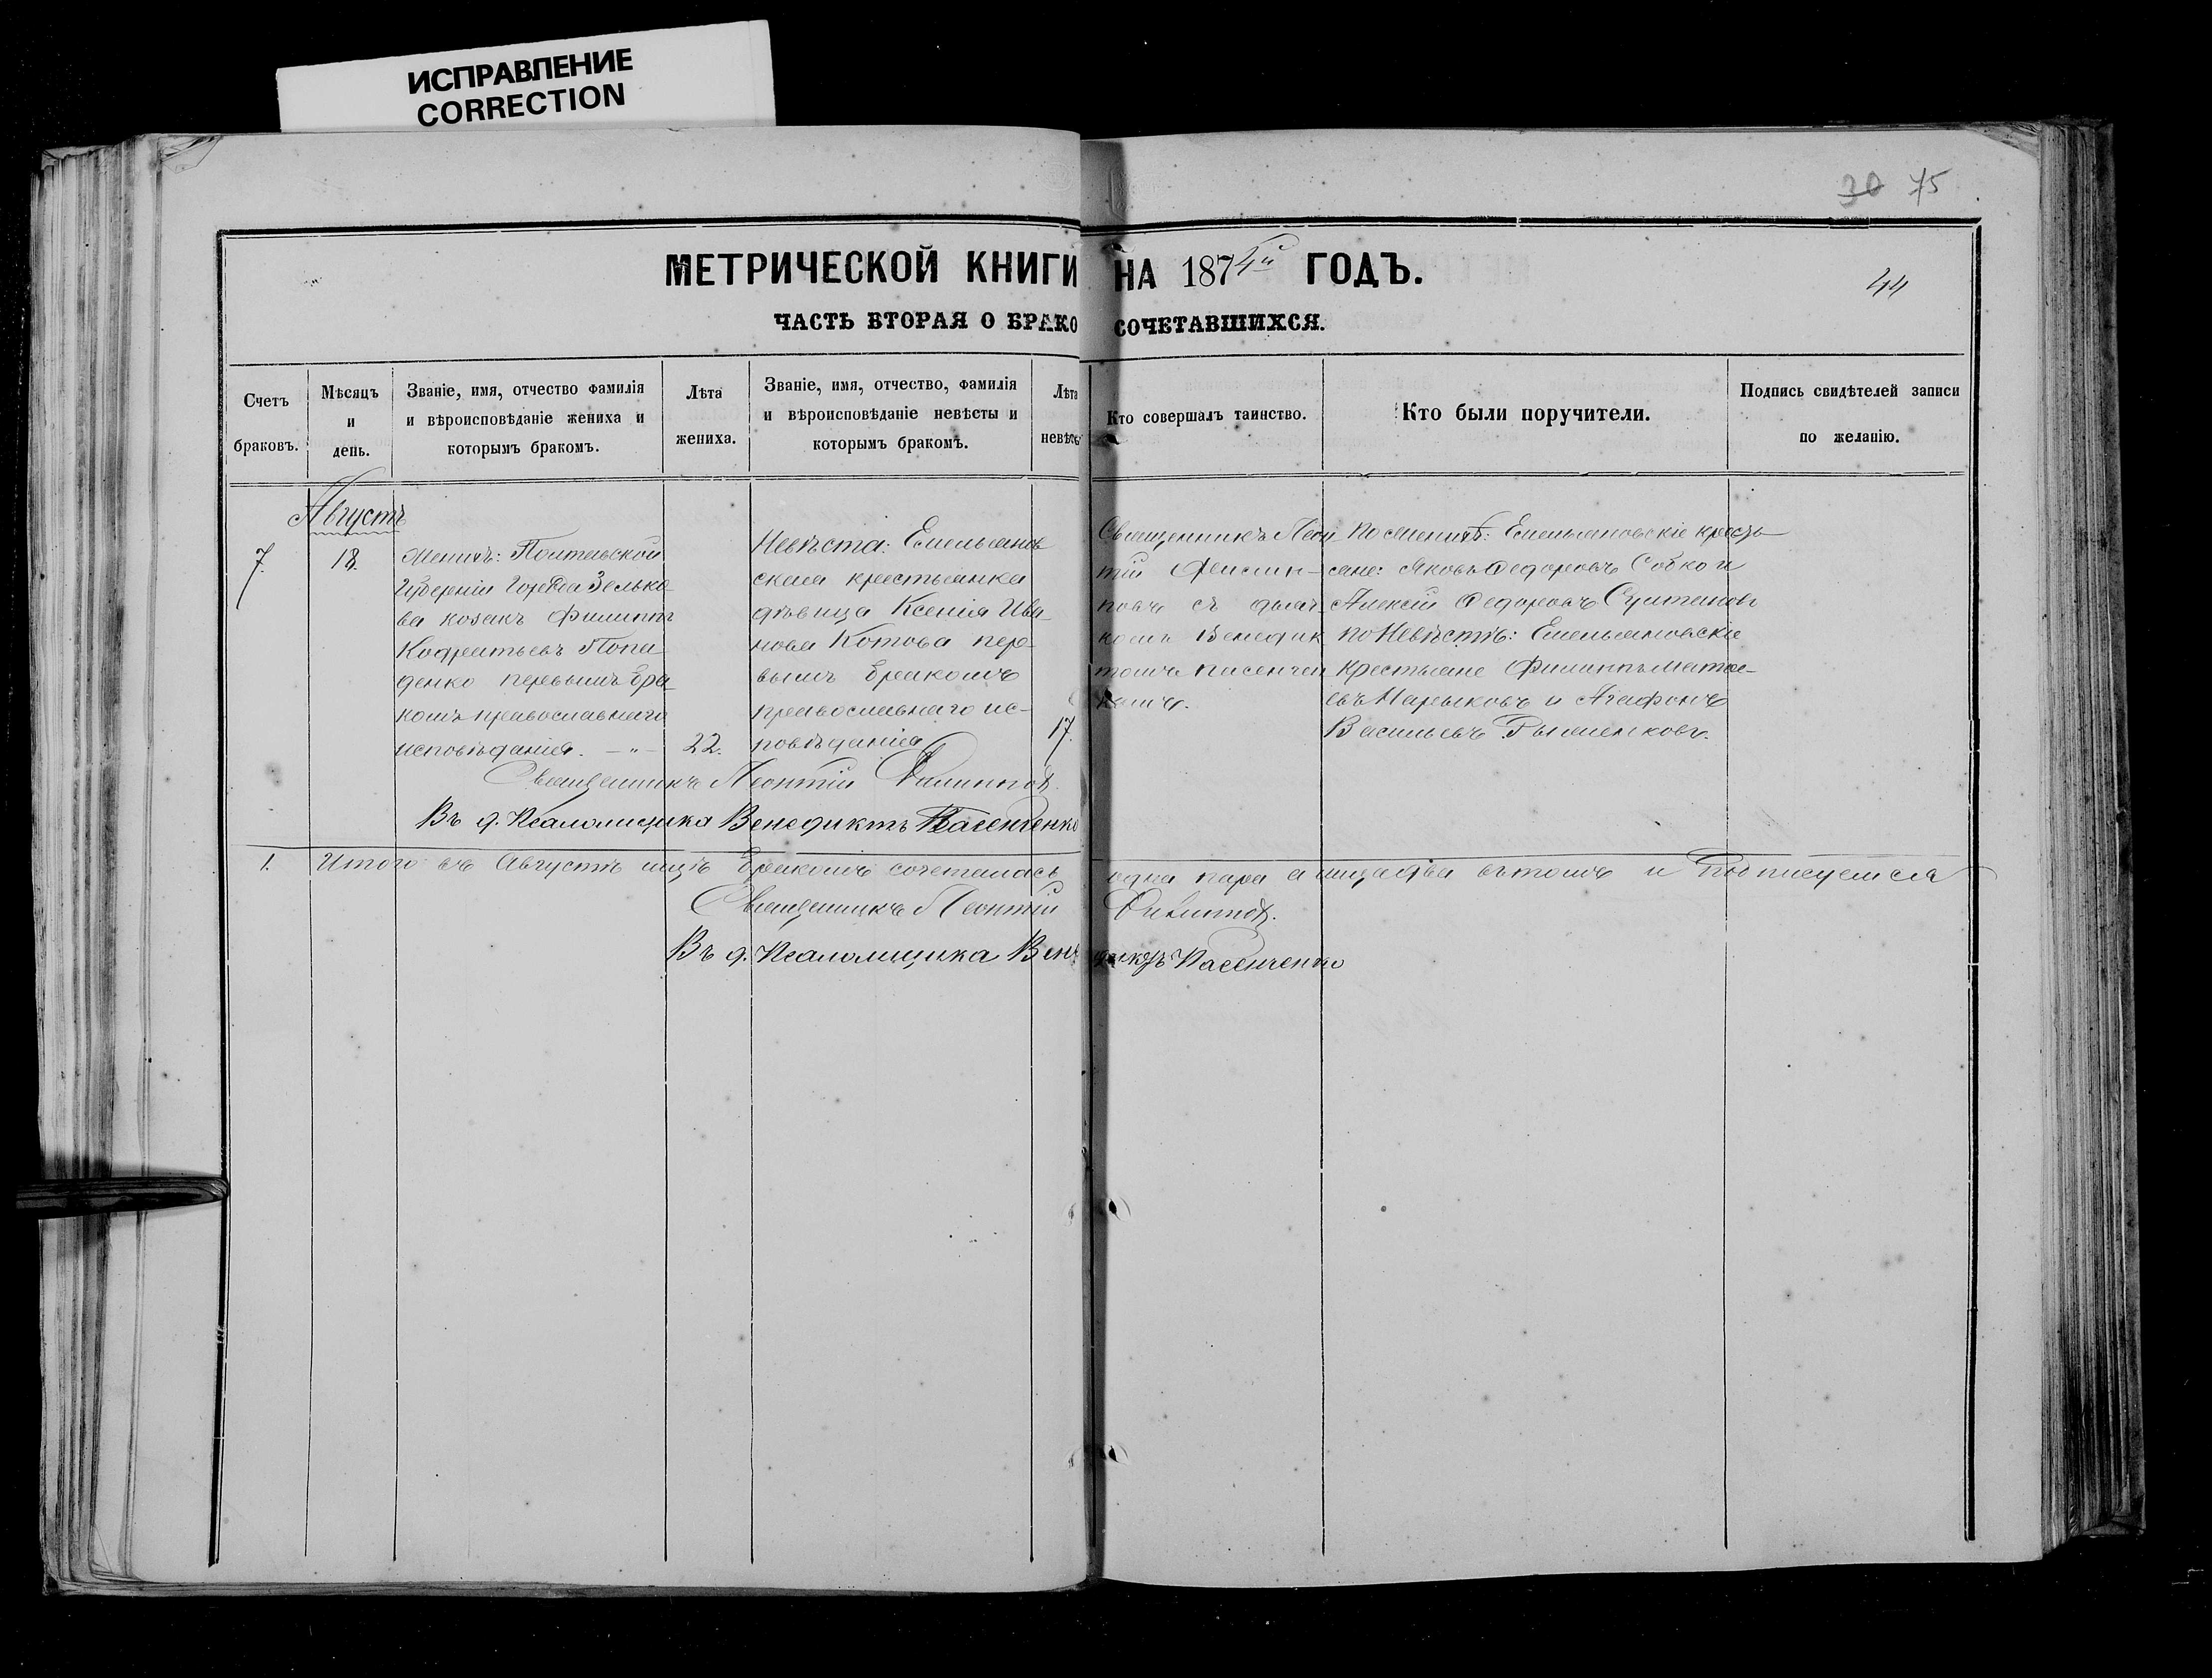 ИСПРАВЛЕНИЕ
CORRECTION
30 75
МЕТРИЧЕСКОЙ КНИГИ НА 1874й ГОДЪ.
44
ЧАСТЬ ВТОРАЯ О БРАКОСОЧЕТАВШИХСЯ.
Счетъ браковъ.
Мѣсяцъ и день.
Званіе, имя, отчество фамилія
и вѣроисповѣданіе жениха и
которымъ бракомъ.
Лѣта жениха.
Званіе, имя, отчество, фамилія
и вѣроисповѣданіе невѣсты и
которымъ бракомъ.
Лѣта невѣс
Кто совершалъ таинство.
Кто были поручители.
Подпись свидѣтелей записи
по желанію.
Августъ
7.
18.
Женихъ: Полтавской
Губерніи Города Зенько-
ва козакъ Филиппъ
Кодратьевъ Попа
денко первымъ бра-
комъ православнаго
исповѣданія. — „ —
22.
Невѣста: Емельянов
ская крестьянка
дѣвица Ксенія Ива-
нова Котова пер-
вымъ бракомъ
православнаго ис-
повѣданія
17.
Священникъ Леон
тій Филип-
повъ съ дьяч-
комъ Венедик
томъ Пасенчен
комъ.
По женихѣ: Емельяновскіе кресть-
яне: Яковъ Федоровъ Собко и
Алексѣй Федоровъ
по Невѣстѣ: Емельяновскіе
крестьяне Филиппъ Матве-
евъ Марыковъ и Агафонъ
Васильевъ
Священникъ Леонтій Филиппов
Въ д. Псаломщика Венедиктъ Пасенченко
1. Итого въ Августѣ м-цѣ бракомъ сочеталась одна пара а лица два въ томъ и Подписуемся
Священникъ Леонтій Филиппов.
Въ д. Псаломщика Венедиктъ Пасенченко